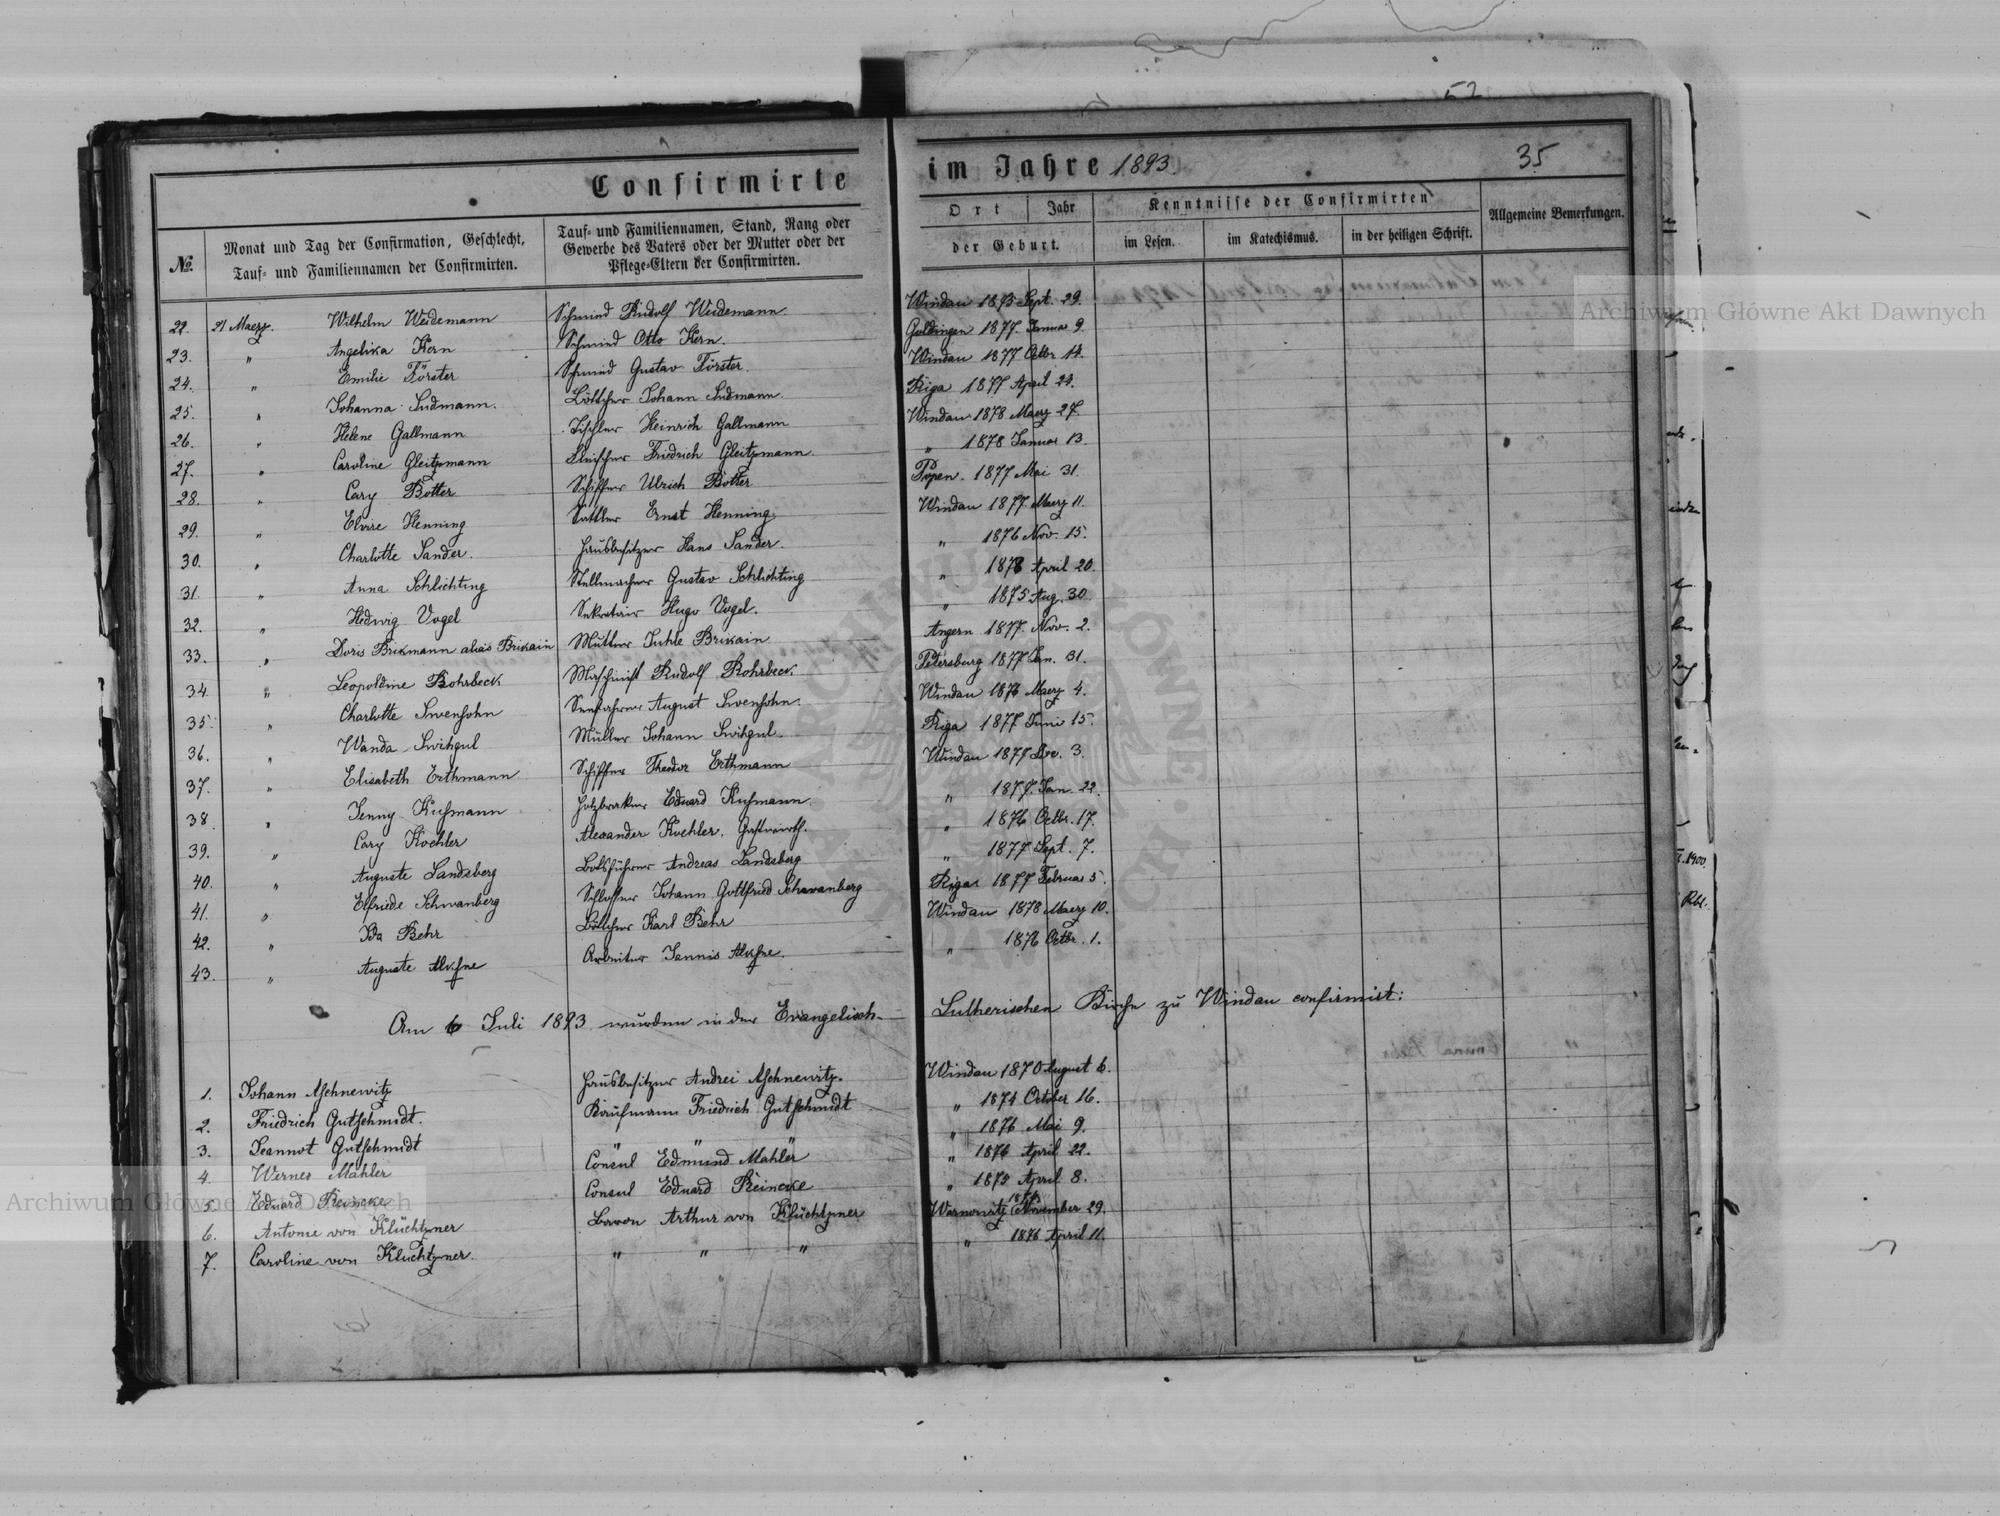 52
Confirmirte im Jahre 1893.
35
№.
Monat und Tag der Confirmation, Geschlecht,
Tauf= und Familiennamen der Confirmirten.
Tauf= und Familiennamen, Stand, Rang oder
Gewerbe des Vaters oder der Mutter oder der
Pflege=Eltern der Confirmirten.
Ort Jahr
der Geburt.
Kenntnisse der Confirmirten
im Lesen. im Katechismus. in der heiligen Schrift.
Allgemeine Bemerkungen.
22. 21 Maerz. Wilhelm Weidemann Schmied Rudolf Weidemann Windau 1875 Sept. 29.
23. " Angelika Kern Schmied Otto Kern. Goldingen 1877. Januar 9.
24. " Emilie Förster Schmied Gustav Förster. Windau 1877 Octbr 14.
25. " Johanna Sudmann. Böttcher Johann Sudmann. Riga 1877 April 24.
26. " Helene Gallmann Tischler Heinrich Gallmann Windau 1878 Maerz 27.
27. " Caroline Gleitzmann Fleischer Friedrich Gleitzmann. " 1878 Januar 13.
28. " Cary Botter Schiffer Ulrich Botter Popen. 1877 Mai 31.
29. " Elvire Henning Sattler Ernst Henning. Windau 1877. Maerz 11.
30. " Charlotte Sander. Hausbesitzer Hans Sander. " 1876 Nov. 15.
31. " Anna Schlichting Stellmacher Gustav Schlichting " 1878 April 20.
32. " Hedwig Vogel Sekretair Hugo Vogel. " 1875 Aug. 30.
33. " Doris Brikmann alias Brikain Mutter Juhle Brikain Angern 1877. Nov. 2.
34. " Leopoldine Rohrbeck Maschinist Rudolf Rohrbeck. Petersburg 1877 Jan. 31.
35. " Charlotte Swensohn Seefahrer August Swensohn. Windau 1876 Maerz 4.
36. " Wanda Swihgul Müller Johann Swihgul. Riga 1877 Juni 15.
37. " Elisabeth Erthmann Schiffer Theodor Erthmann Windau 1877 Dec. 3.
38. " Jenny Kusmann Holzbraker Eduard Kusmann. " 1877. Jan. 22.
39. " Cary Koehler Alexander Koehler, Gastwirth. " 1876 Octbr. 17.
40. " Auguste Landsberg Botsführer Andreas Landsberg " 1877 Sept. 7.
41. " Elfriede Schwanberg Schlosser Johann Gottfried Schwanberg Riga 1877 Februar 5.
42. " Ida Behr Böttcher Karl Behr Windau 1878 Maerz 10.
43. " Auguste Alksne Arbeiter Jannis Alksne. " 1876 Octbr. 1.
Am 6 Juli 1893 wurden in der Evangelisch- Lutherischen Kirche zu Windau confirmirt:
1. Johann Aschnewitz Hausbesitzer Andrei Aschnewitz. Windau 1870 August 6.
2. Friedrich Gutschmidt. Kaufmann Friedrich Gutschmidt " 1874 October 16.
3. Jeannot Gutschmidt " " " " 1876 Mai 9.
4. Werner Mahler Consul Edmund Mahler " 1876 April 22.
5. Eduard Reincke Consul Eduard Reincke " 1875 April 8.
6. Antonie von Klüchtzner Baron Arthur von Klüchtzner Warnowitz November 29.
7. Caroline von Klüchtzner. " " " " 1876 April 11.
Archiwum Główne Akt Dawnych
Archiwum Główne Akt Dawnych